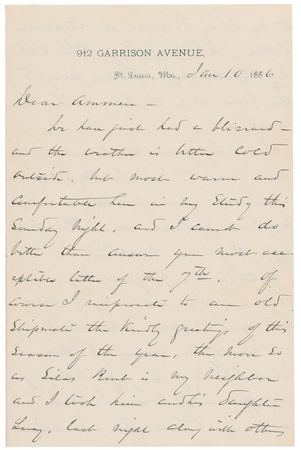 912 GARRISON AVENUE,
St. Louis, Mo., Jan 10 1886
Dear Ammen –
We have just had a blizzard –
and the weather is bitter cold
outside, but most warm and
Comfortable here in my Study this
Sunday Night, and I cannot do
better than answer your most acc-
eptible letter of the 7th. Of
course I reciprocate to an old
Shipmate the Kindly greetings of this
Season of the year, the more so
as Silas Bent is my Neighbor
and I took him and his daughter
Lucy, last night along with others